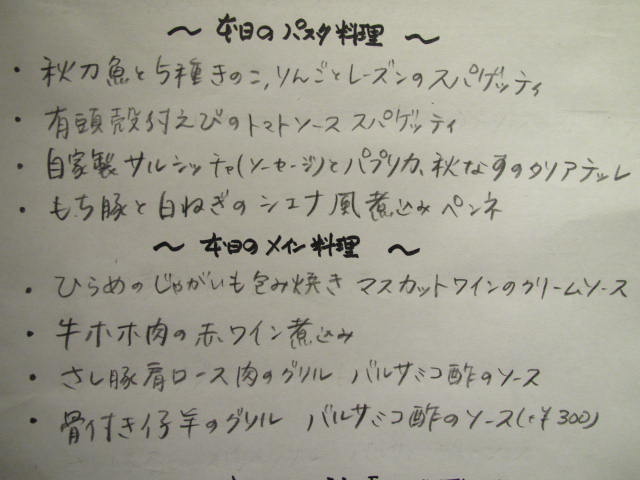 ～ 本日のパスタ料理 ～
・秋刀魚と5種きのこ,りんごとレーズンのスパゲッティ
・有頭殻付えびのトマトソース スパゲッティ
・自家製サルシッチャ(ソーセージ)とパプリカ、秋なすのタリアテッレ
・もち豚と白ねぎのシエナ風煮込みペンネ
～ 本日のメイン料理 ～
・ひらめのじゃがいも包み焼き マスカットワインのクリームソース
・牛ホホ肉の赤ワイン煮込み
・さし豚肩ロース肉のグリル バルサミコ酢のソース
・骨付き仔羊のグリル バルサミコ酢のソース(+¥300)